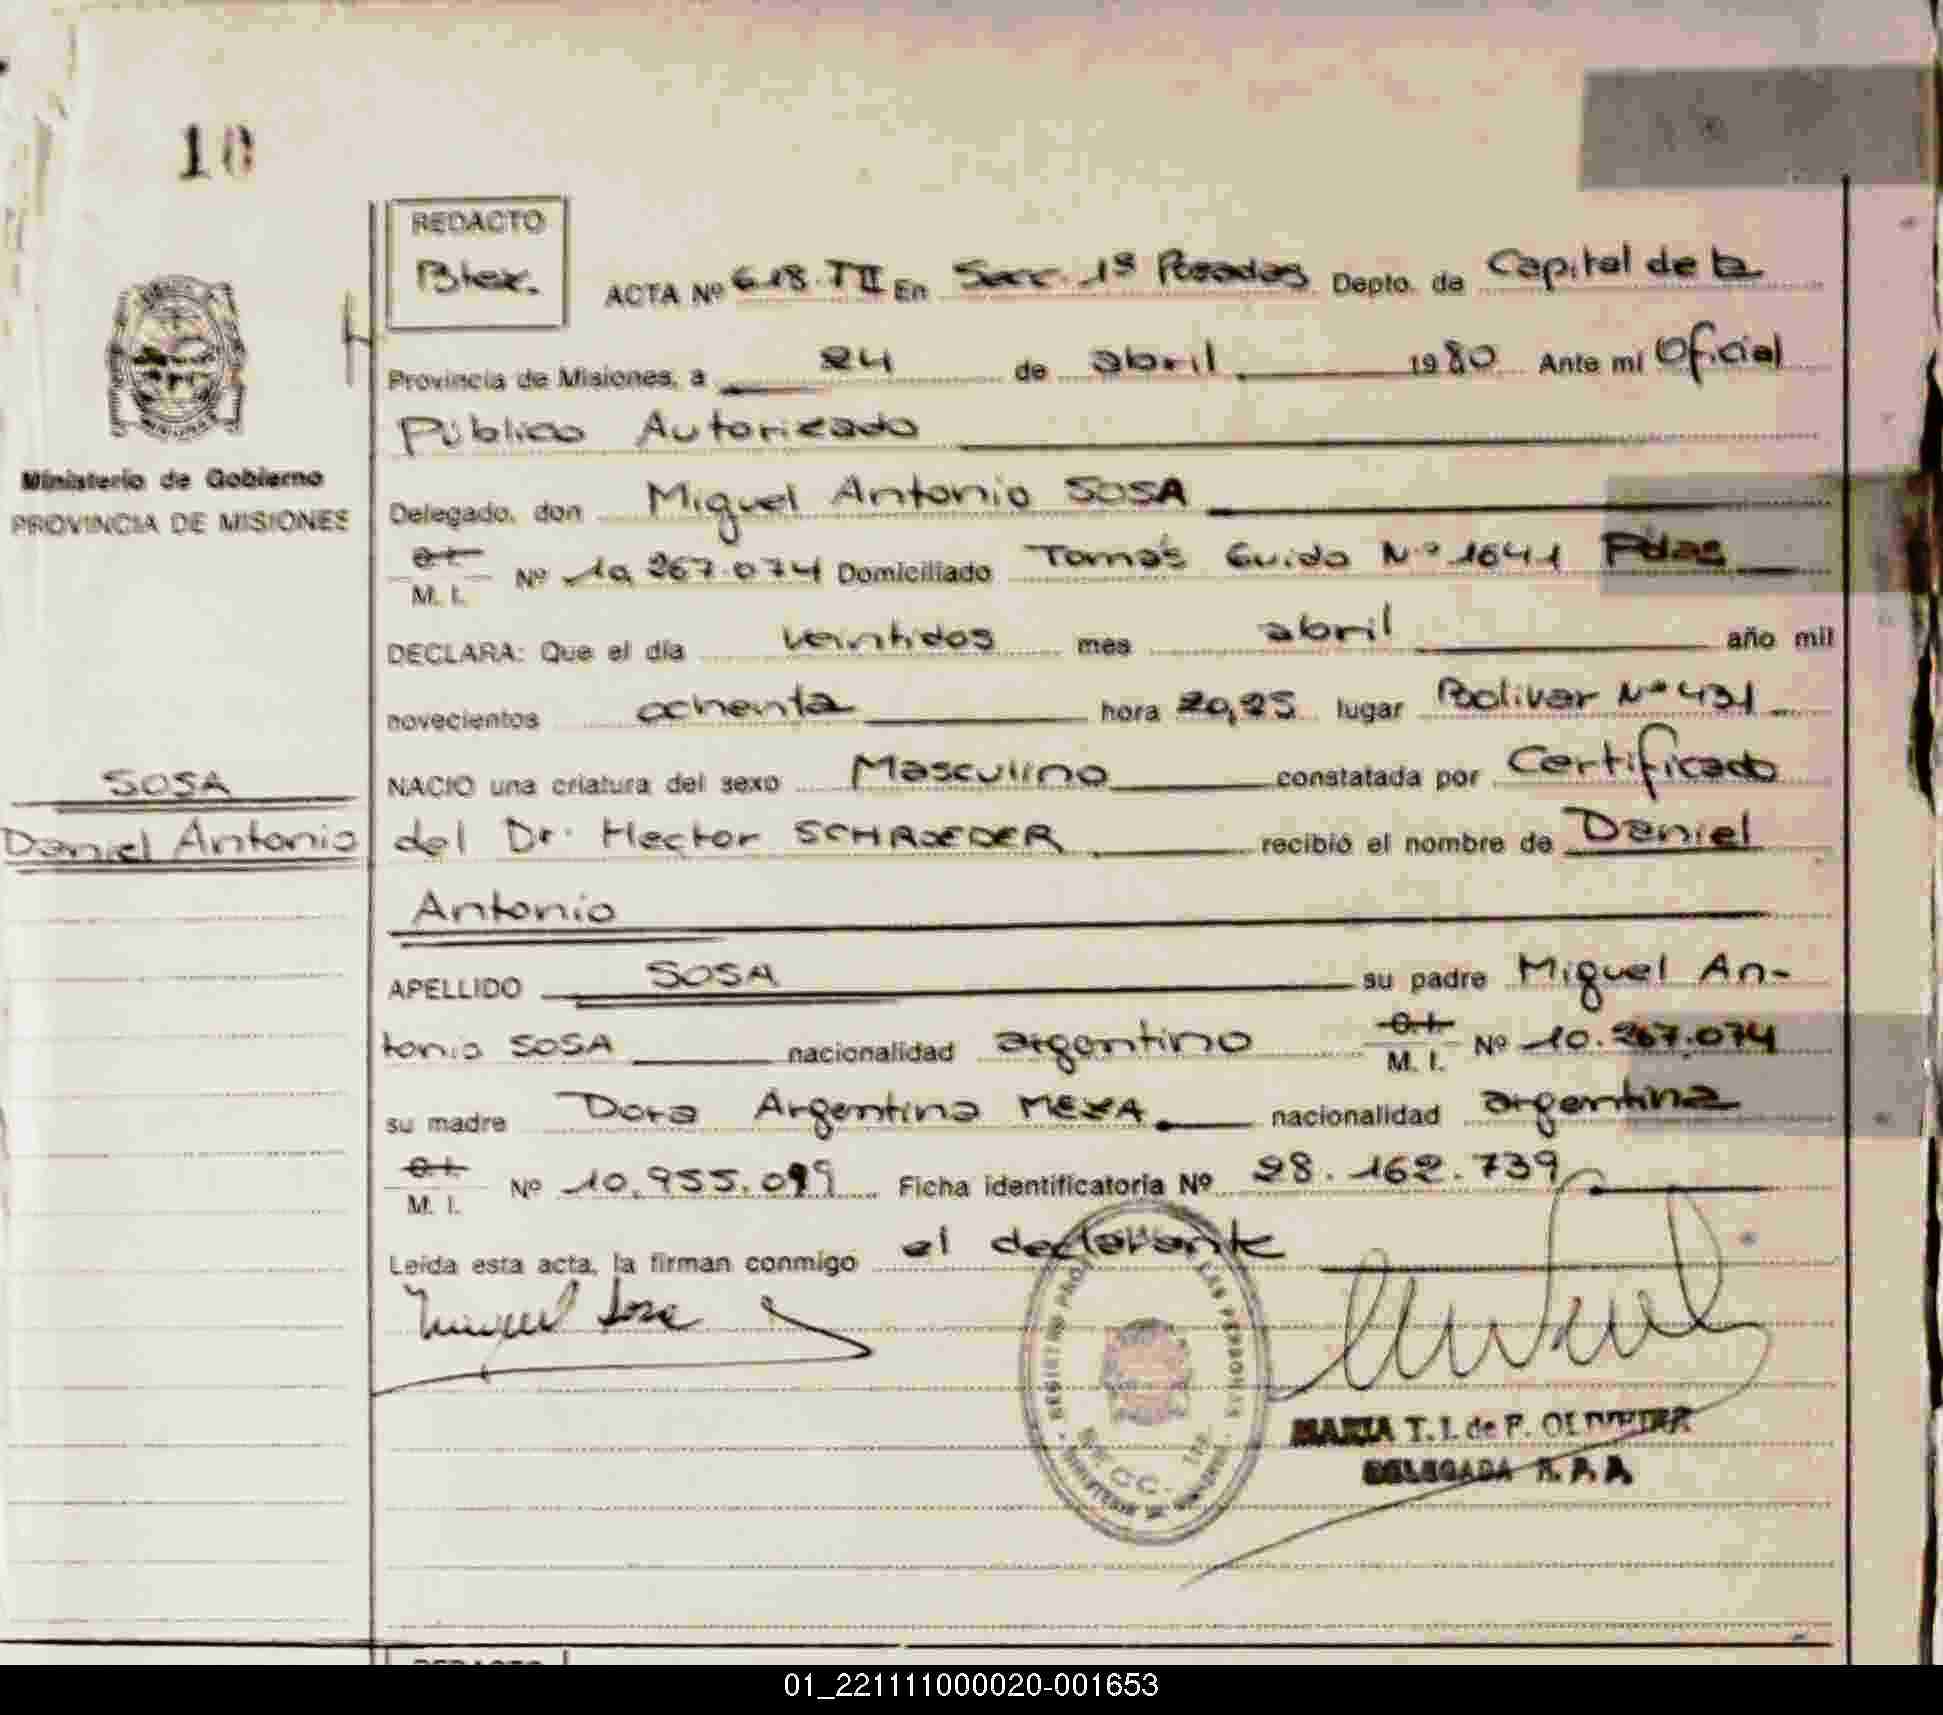 10
REDACTO
Btex.
ACTA Nº 618.TII En Secc. 1ª Posadas Depto. de Capital de la
Provincia de Misiones, a 24 de abril 1980 Ante mí Oficial
Público Autorizado
Ministerio de Gobierno
PROVINCIA DE MISIONES
Delegado, don Miguel Antonio SOSA
C.I.
M. I. Nº 10.267.074 Domiciliado Tomás Guido Nº 1641 Pdas
DECLARA: Que el día veintidos mes abril año mil
novecientos ochenta hora 20,25 lugar Bolivar Nº 431
SOSA
Daniel Antonio
NACIO una criatura del sexo Masculino constatada por Certificado
del Dr. Hector SCHROEDER recibió el nombre de Daniel
Antonio
APELLIDO SOSA su padre Miguel An-
tonio SOSA nacionalidad argentino C.I. M. I. Nº 10.267.074
su madre Dora Argentina MEZA nacionalidad argentina
C.I.
M. I. Nº 10.955.099 Ficha identificatoria Nº 28.162.739
Leída esta acta, la firman conmigo el declarante
Miguel Sosa
MARIA T. I. de F. OLIVEIRA
DELEGADA R. P. P.
REDACTO
01_221111000020-001653